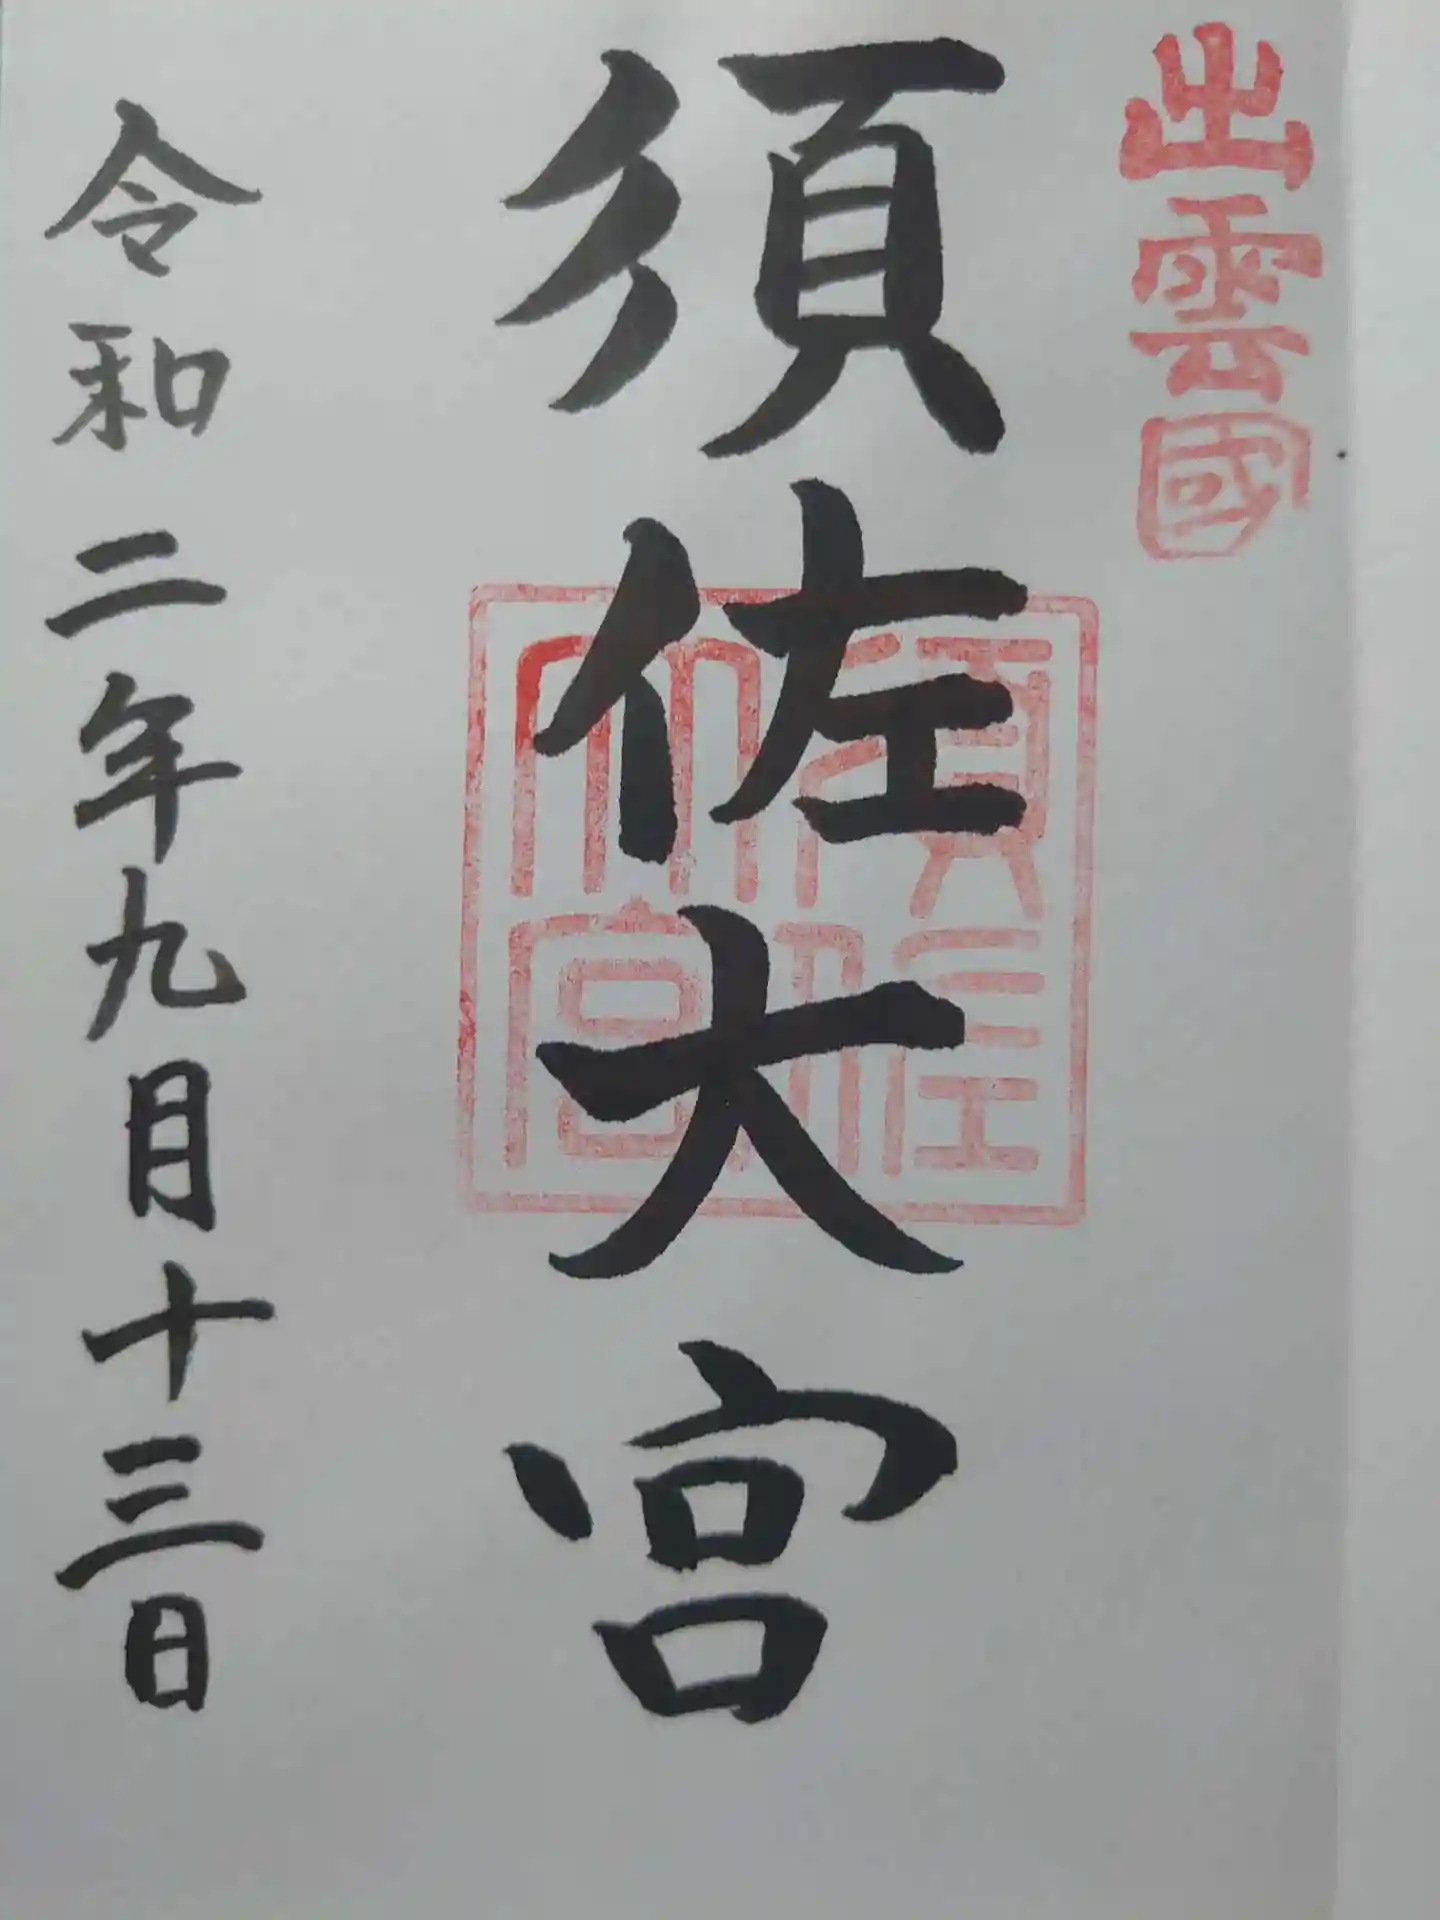 出雲國
須佐大宮
須佐大宮
令和二年九月十三日